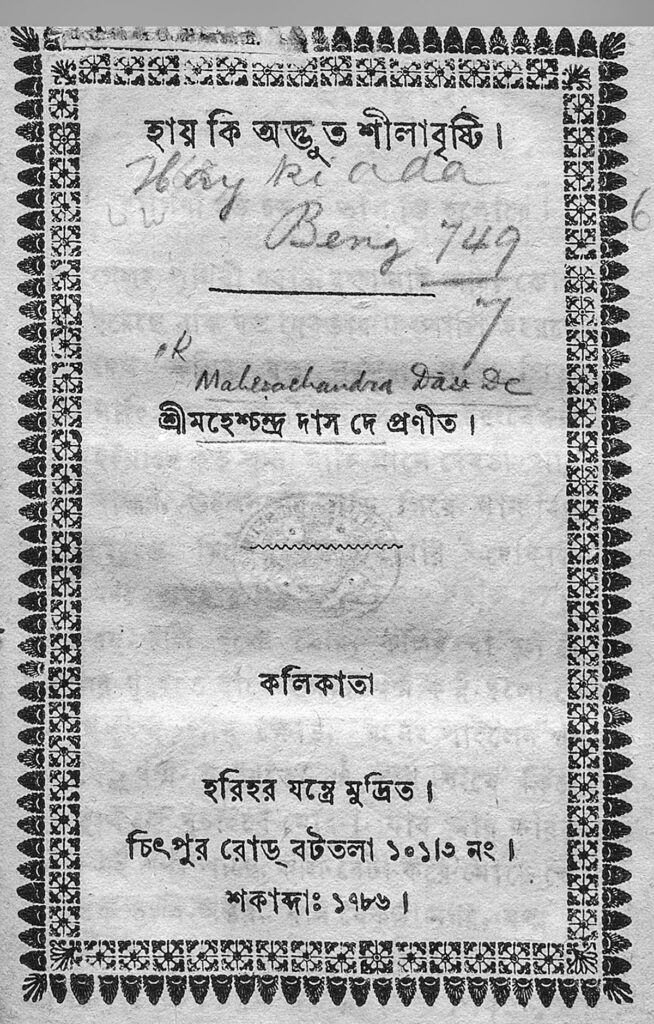 হায় কি অদ্ভুত শীলাবৃষ্টি।
Hay ki ada
Beng 749
7
Mahesachandra Dasa De
শ্রীমহেশ্চন্দ্র দাস দে প্রণীত।
কলিকাতা
হরিহর যন্ত্রে মুদ্রিত।
চিৎপুর রোড্ বটতলা ১০১।৩ নং।
শকাব্দাঃ ১৭৮৬।